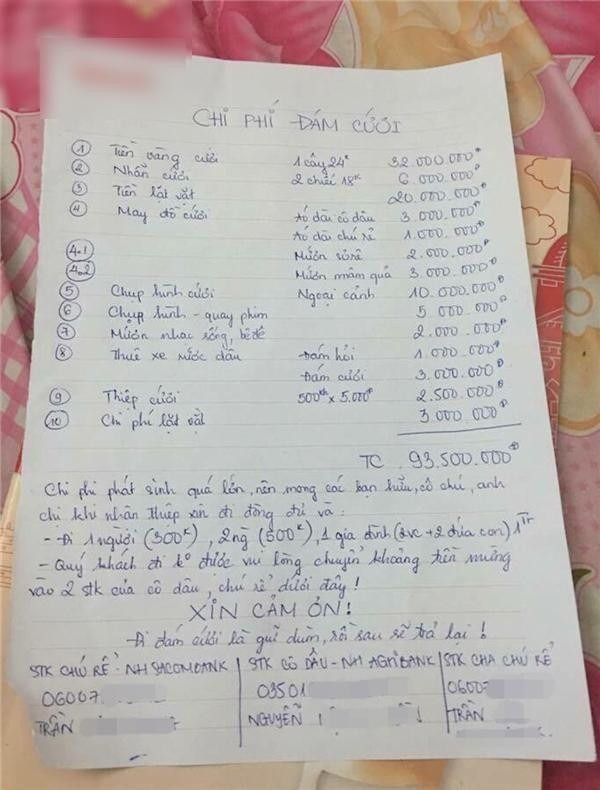 CHI PHÍ ĐÁM CƯỚI
① Tiền vàng cưới 1 cây 24K 32.000.000đ
② Nhẫn cưới 2 chiếc 18K 6.000.000đ
③ Tiền lát vặt 20.000.000đ
④ May đồ cưới Áo dài cô dâu 3.000.000đ
Áo dài chú rể 1.000.000đ
4.1 Mướn sôrê 2.000.000đ
4.2 Mướn mâm quả 3.000.000đ
⑤ Chụp hình cưới Ngoại cảnh 10.000.000đ
⑥ Chụp hình - quay phim 5.000.000đ
⑦ Mướn nhạc sống, bê đê 2.000.000đ
⑧ Thuê xe rước dâu Đám hỏi 1.000.000đ
Đám cưới 3.000.000đ
⑨ Thiệp cưới 500 x 5.000đ 2.500.000đ
⑩ Chi phí lặt vặt 3.000.000đ
TC 93.500.000đ
Chi phí phát sinh quá lớn, nên mong các bạn hữu, cô chú, anh
chị khi nhận thiệp xin đi đông đủ và:
- Đi 1 người (300K), 2ng (500K), 1 gia đình (2vc + 2 đứa con) 1Tr
- Quý khách đi ko được vui lòng chuyển khoảng tiền mừng
vào 2 stk của cô dâu, chú rể dưới đây!
XIN CẢM ƠN!
Đi đám cưới là gửi dùm, rồi sau sẽ trả lại!
STK CHÚ RỂ: NH SACOMBANK STK CÔ DÂU - NH AGRIBANK STK CHA CHÚ RỂ
06007 03501 06007
TRẦN NGUYỄN TRẦN